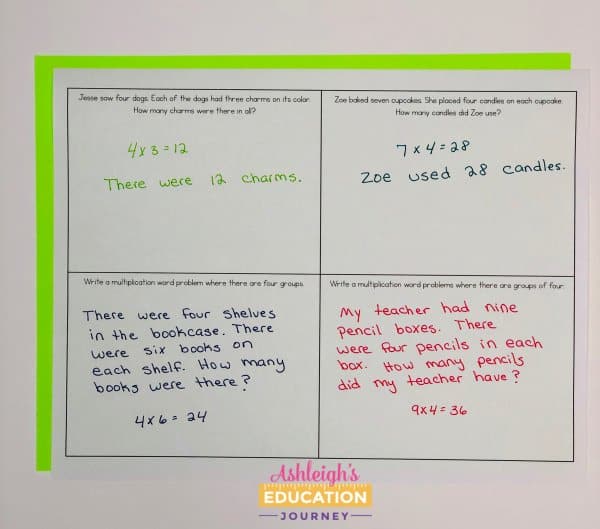 Jesse saw four dogs. Each of the dogs had three charms on its color.
How many charms were there in all?
4 x 3 = 12
There were 12 charms.
Zoe baked seven cupcakes. She placed four candles on each cupcake.
How many candles did Zoe use?
7 x 4 = 28
Zoe used 28 candles.
Write a multiplication word problem where there are four groups.
There were four shelves
in the bookcase. There
were six books on
each shelf. How many
books were there?
4 x 6 = 24
Write a multiplication word problems where there are groups of four.
My teacher had nine
pencil boxes. There
were four pencils in each
box. How many pencils
did my teacher have?
9 x 4 = 36
Ashleigh's
EDUCATION
JOURNEY